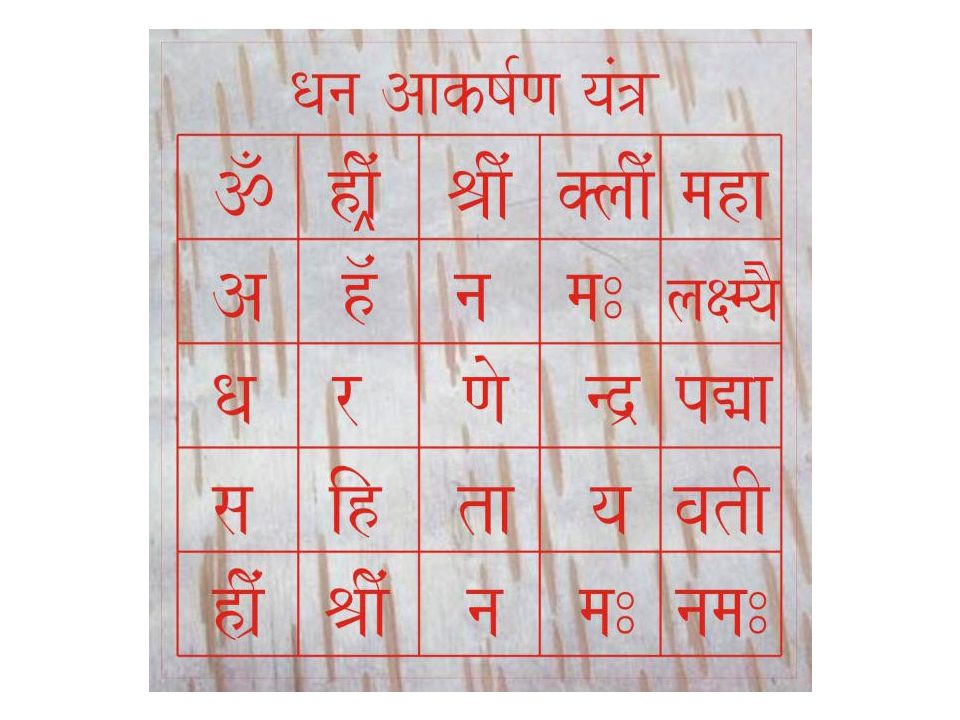 धन आकर्षण यंत्र
ॐ ह्रीं श्रीं क्लीं महा
अ हॅं न मः लक्ष्म्यै
ध र णे न्द्र पद्मा
स हि ता य वती
ह्रीं श्रीं न मः नमः